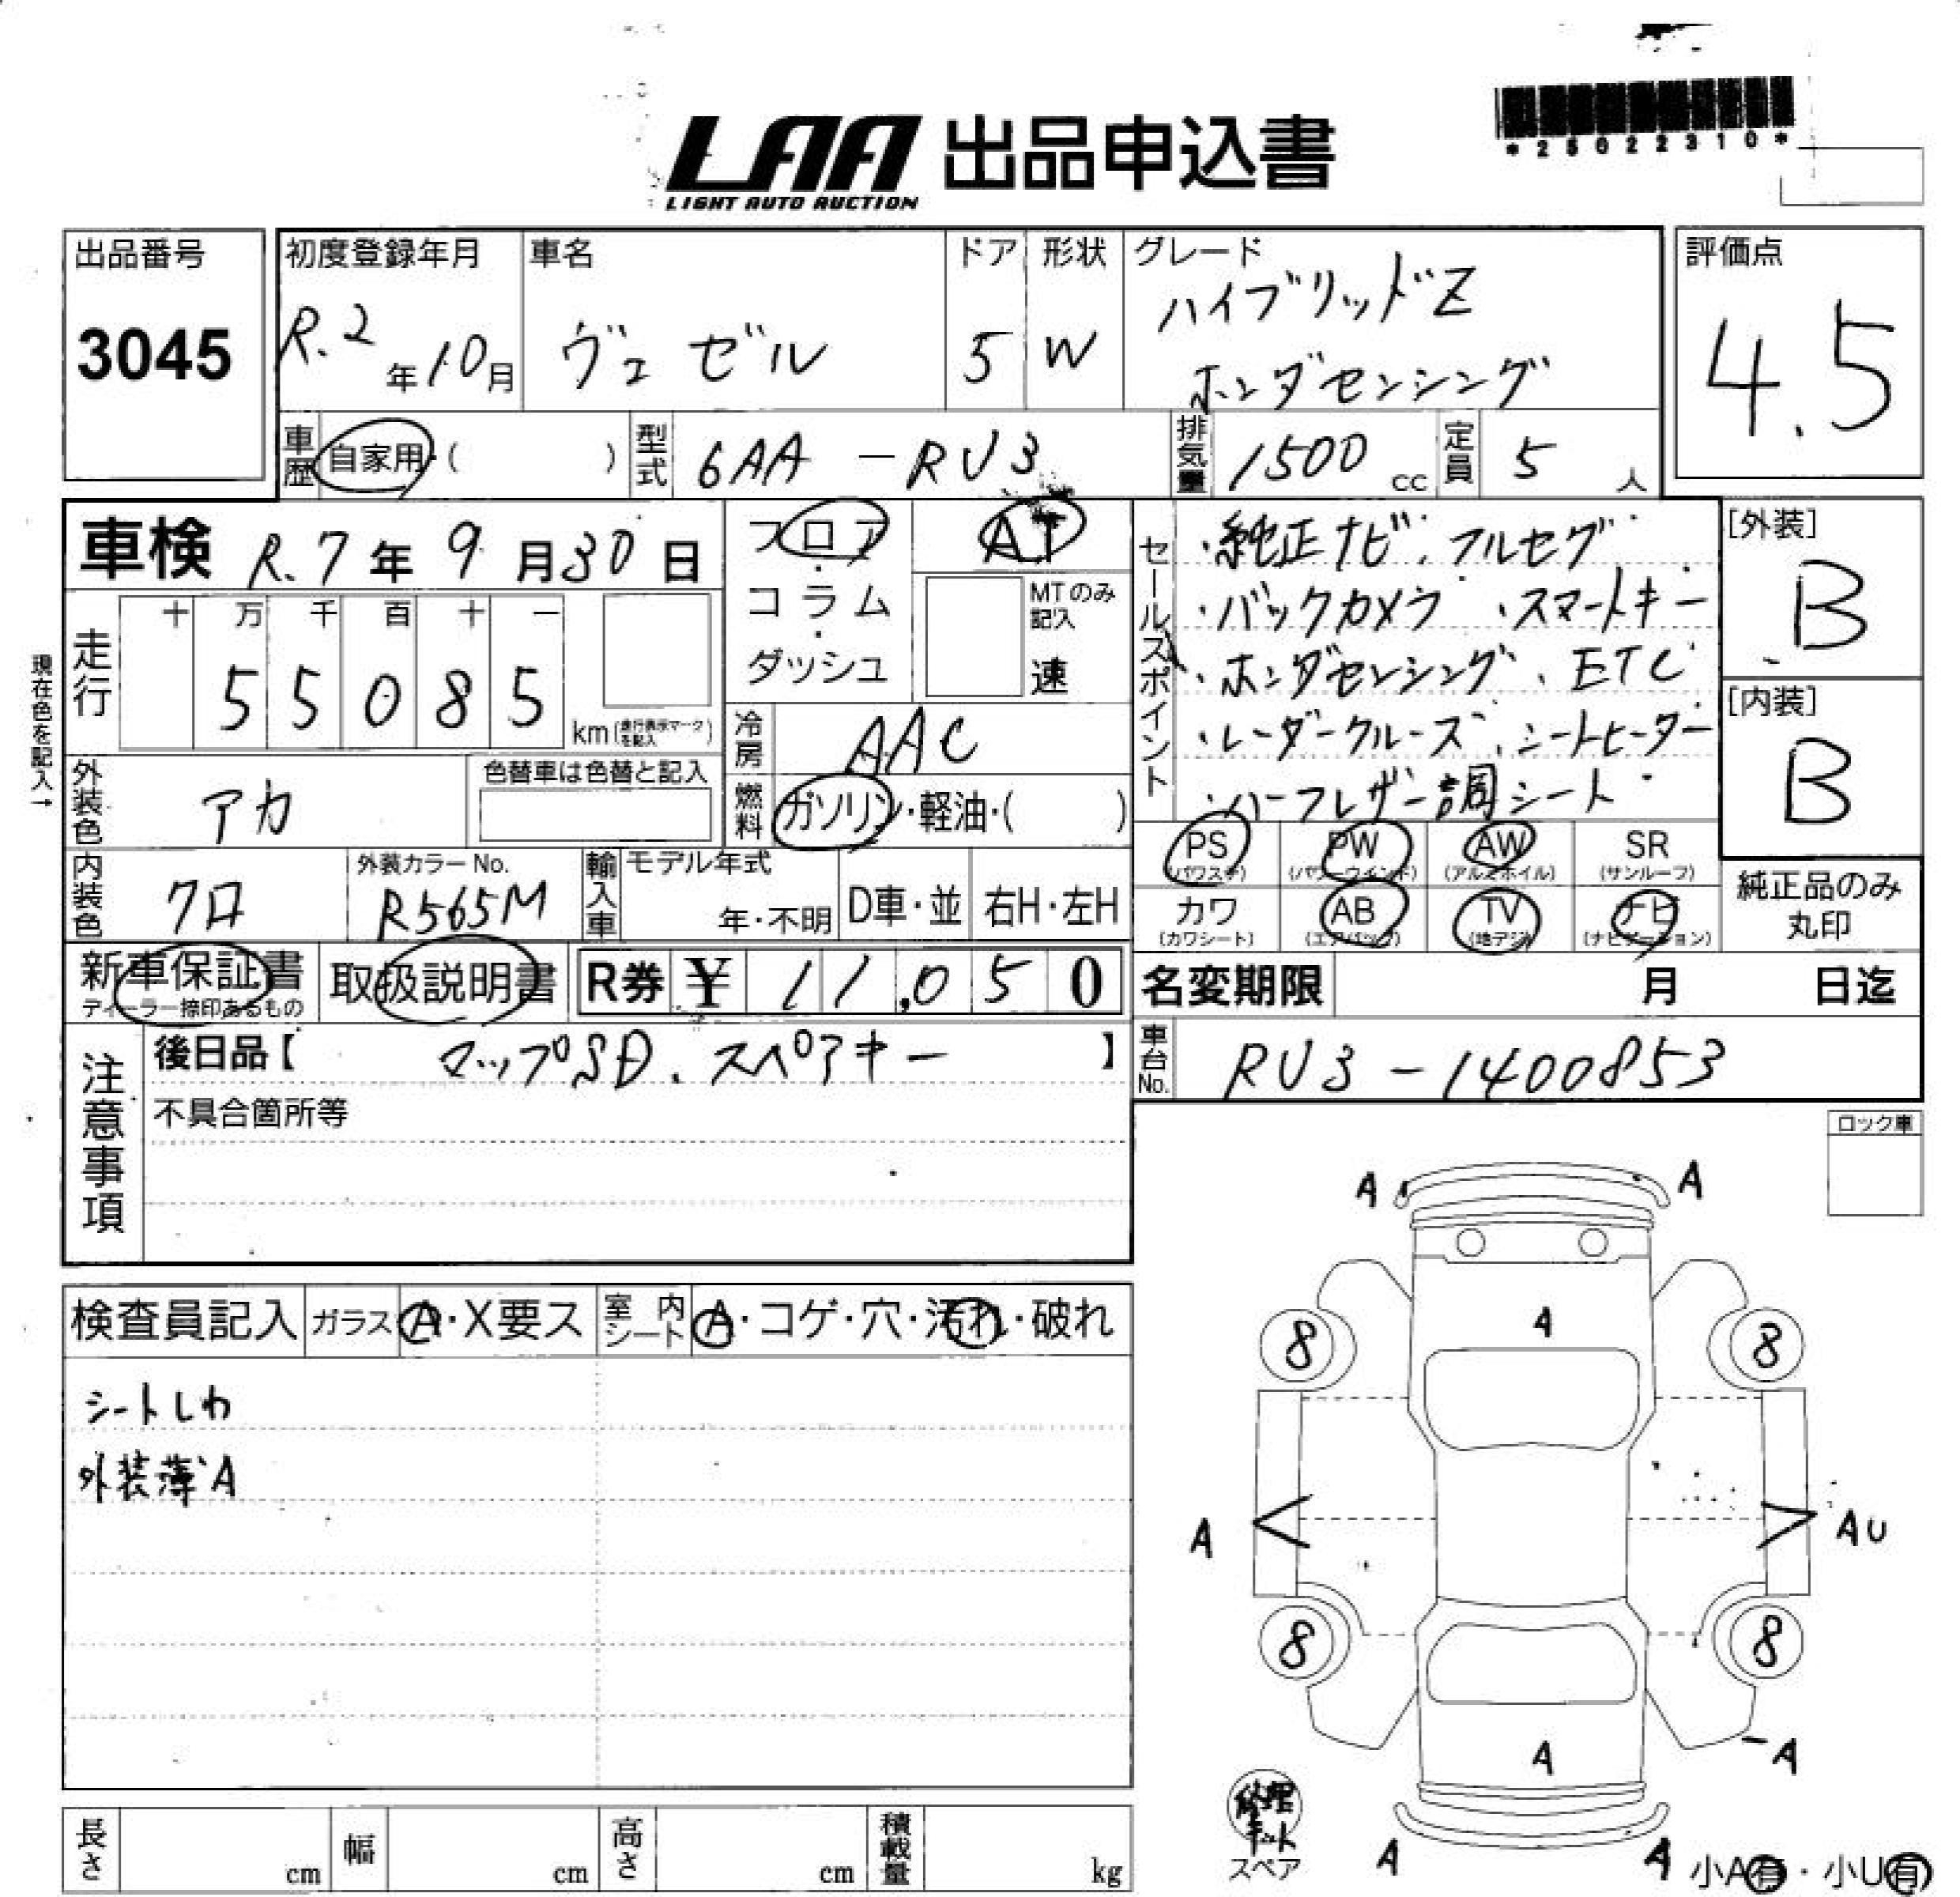 *25022310*
LAA 出品申込書
LIGHT AUTO AUCTION
出品番号
3045
初度登録年月
R.2年10月
車名
ヴェゼル
ドア
5
形状
W
グレード
ハイブリッドZ
ホンダセンシング
評価点
4.5
車歴
自家用・( )
型式
6AA-RU3
排気量
1500 cc
定員
5 人
車検 R.7年9月30日
フロア
・
コラム
・
ダッシュ
AT
MTのみ記入
速
セールスポイント
・純正ナビ、フルセグ
・バックカメラ、スマートキー
・ホンダセンシング、ETC
・レーダークルーズ、シートヒーター
・ハーフレザー調シート
[外装]
B
[内装]
B
現在色を記入→
走行
十 万 千 百 十 一
5 5 0 8 5
km(走行表示マークを記入)
冷房
AAC
外装色
アカ
色替車は色替と記入
燃料
ガソリン・軽油・( )
PS (パワステ)
PW (パワーウインド)
AW (アルミホイル)
SR (サンルーフ)
カワ (カワシート)
AB (エアバック)
TV (地デジ)
ナビ (ナビゲーション)
純正品のみ
丸印
内装色
クロ
外装カラーNo.
R565M
輸入車
モデル年式
年・不明
D車・並
右H・左H
新車保証書
ディーラー捺印あるもの
取扱説明書
R券 ¥ 11,050
名変期限 月 日迄
車台No.
RU3-1400853
注意事項
後日品【 マップSD、スペアキー 】
不具合箇所等
ロック車
検査員記入
ガラス
A・X要ス
室内シート
A・コゲ・穴・汚れ・破れ
シートしわ
外装薄A
A A
A
8 8
A AU
8 8
A
A
修理キット
スペア
A A
小A有・小U有
長さ cm
幅 cm
高さ cm
積載量 kg